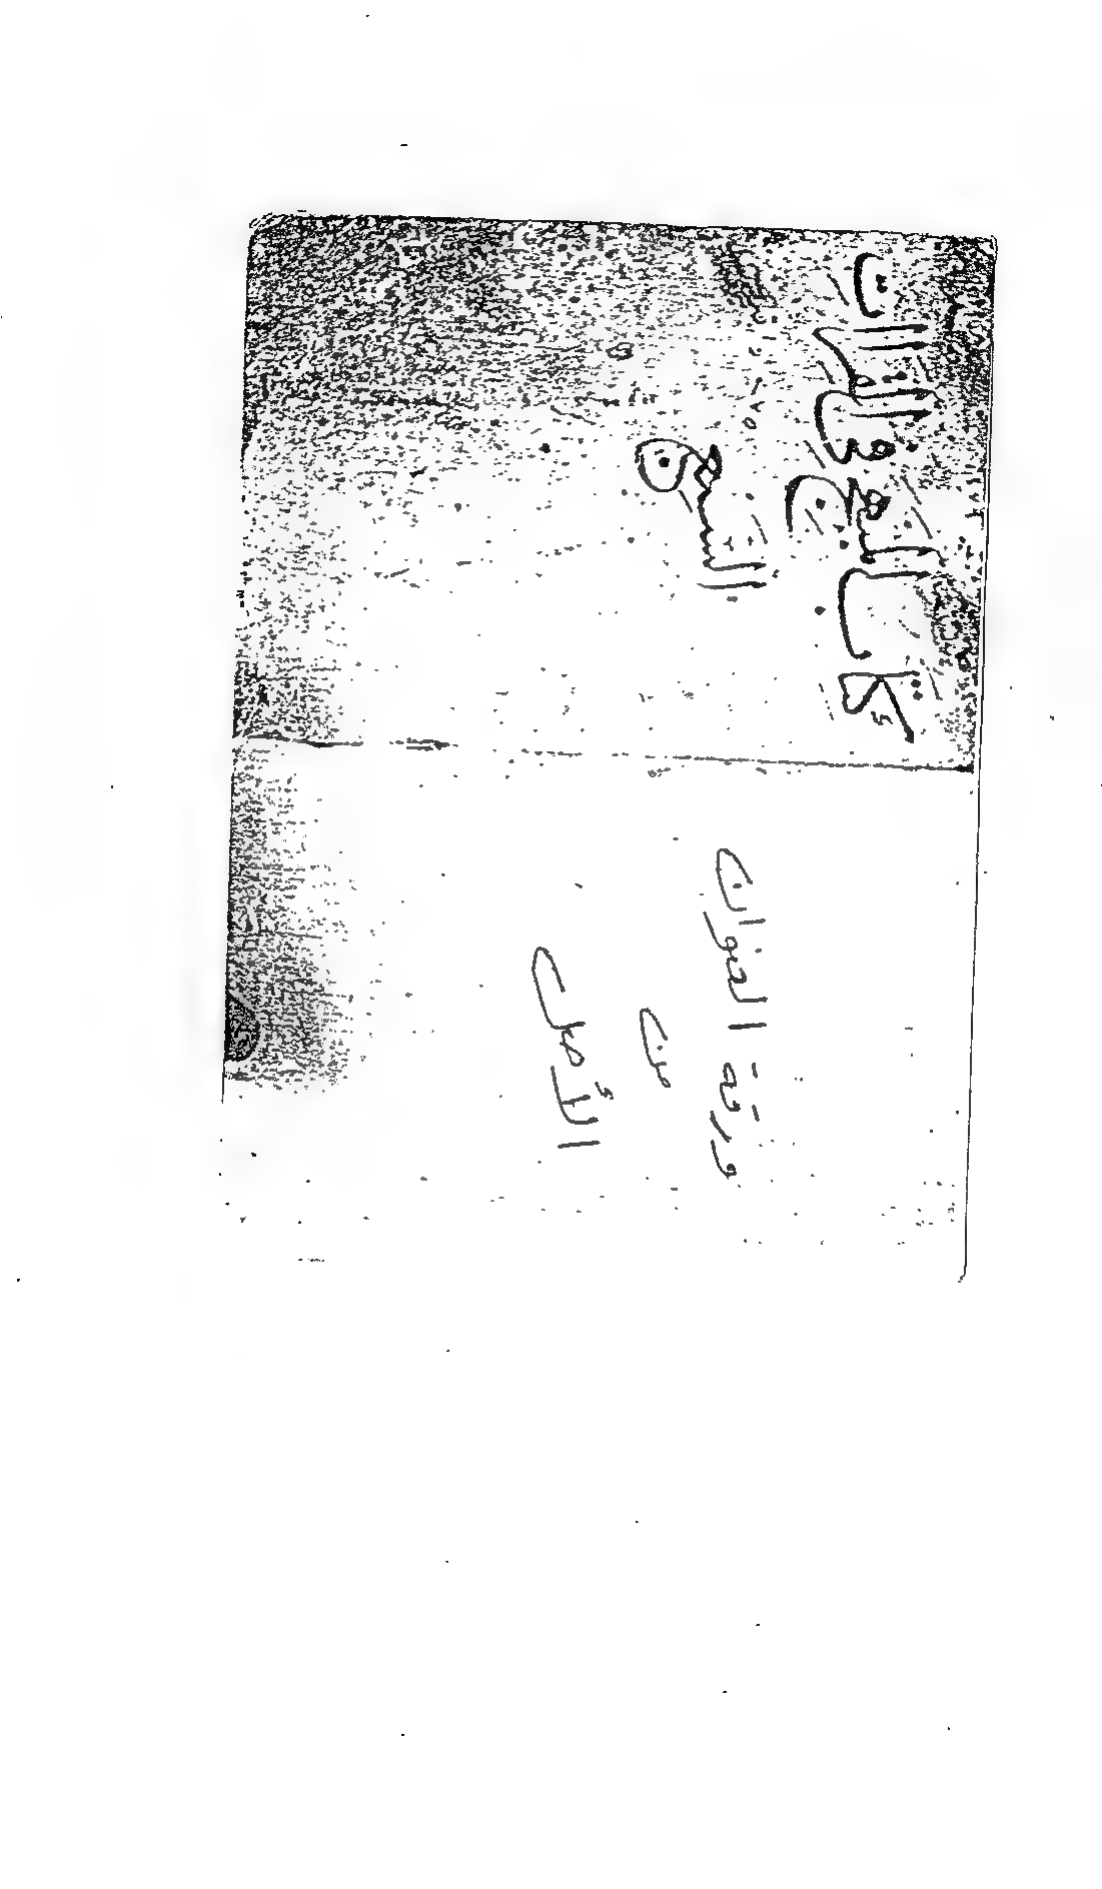 كتاب المبهج في القراات
ورقة العنوان
من
الأصل